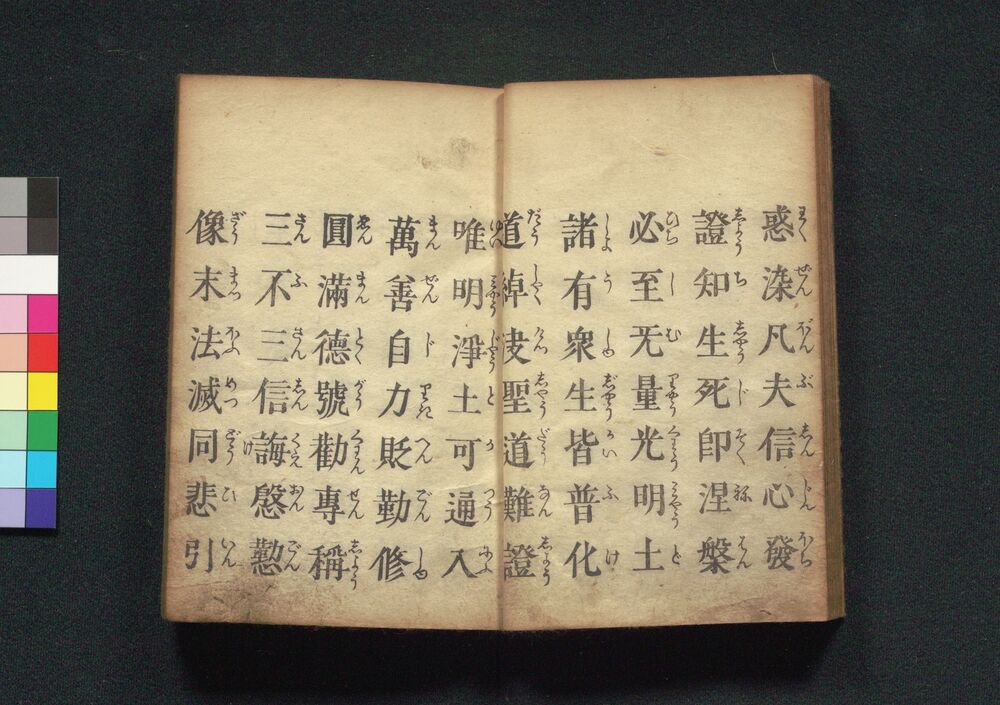 惑染凡夫信心發
證知生死即涅槃
必至无量光明土
諸有衆生皆普化
道綽决聖道難證
唯明淨土可通入
萬善自力貶勤修
圓滿德號勸專稱
三不三信誨慇懃
像末法滅同悲引